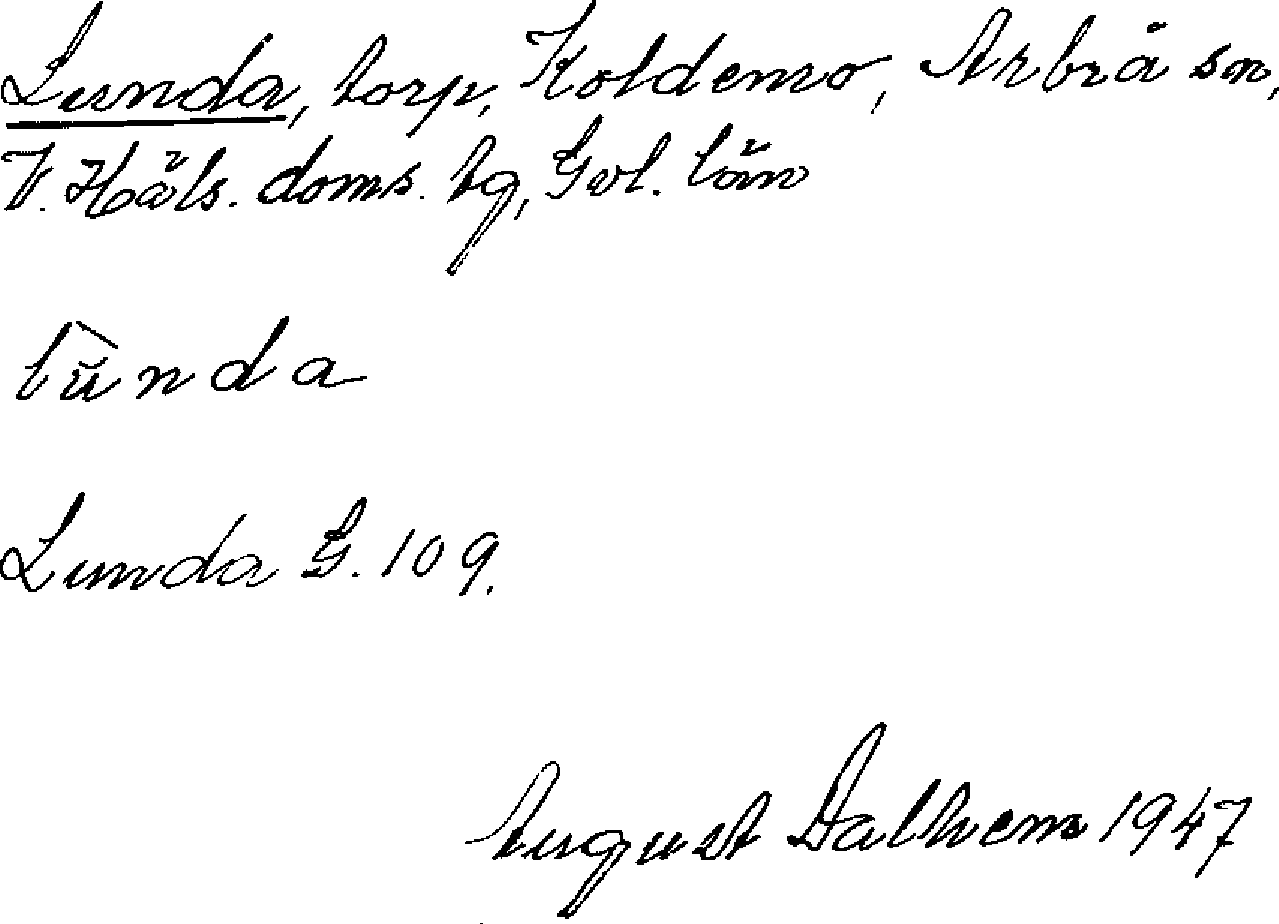 Lunda, torp, Koldemo, Arbrå sn,
V. Häls. doms. tg, Gvl. län
lùnda
Lunda G. 109.
August Dalhem 1947